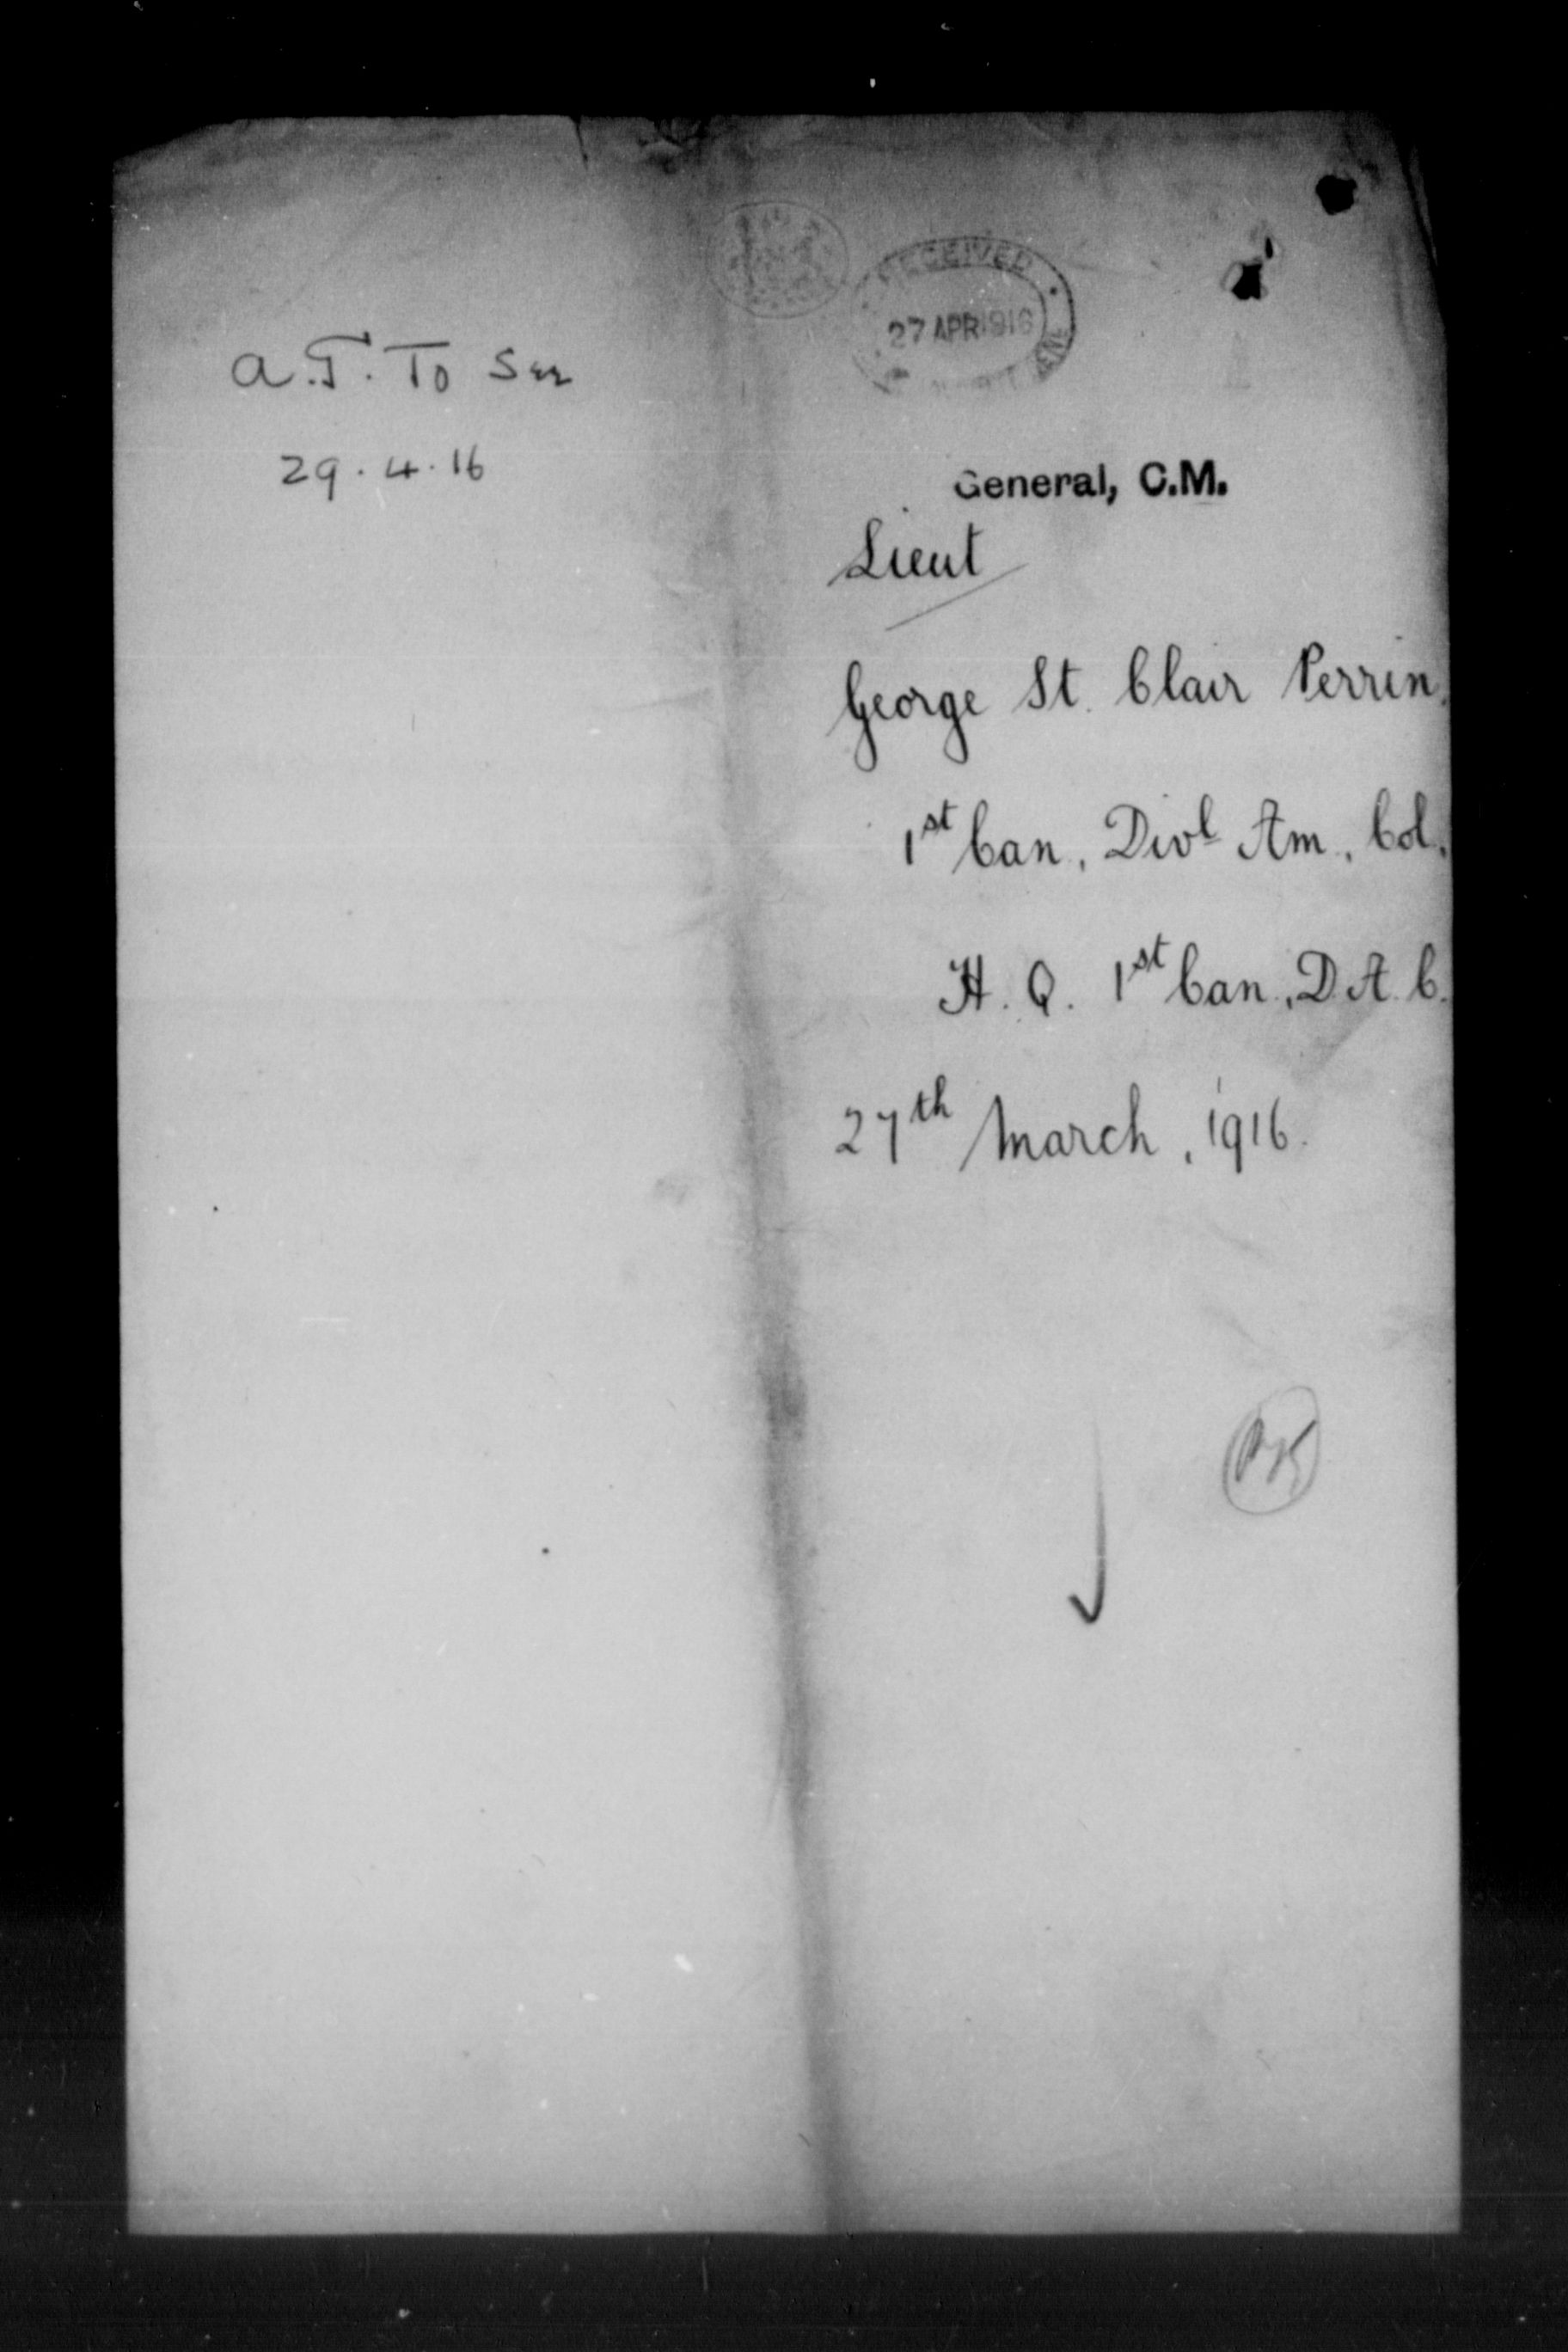 RECEIVED
27 APR 1916
A.G. To See
29.4.16
General, C.M.
Lieut
George St. Clair Perrin.
1st Can. Divl Am. Col.
H. Q. 1st Can. D.A.C.
27th March, 1916.